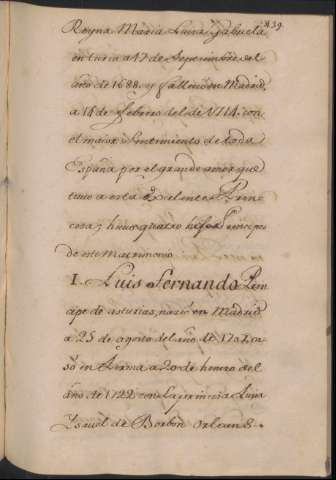 439
Reyna Maria Luisa Gabriela
en turin a 17 de Septiembre del
año de 1688. y fallecio en Madrid,
a 14 de febrero del de 1714. con
el maior sentimiento de toda
España por el grande amor que
tuvo a esta Excelente Prin
cesa; y hubo quatro hijos Principes
de este Matrimonio
I. Luis Fernando Prin
cipe de asturias, nacio en Madrid
a 25 de agosto del año de 1707. ca
só en lerma a 20 de henero del
año de 1722. con la princesa Luisa
Ysavel de Borbon Orleans.